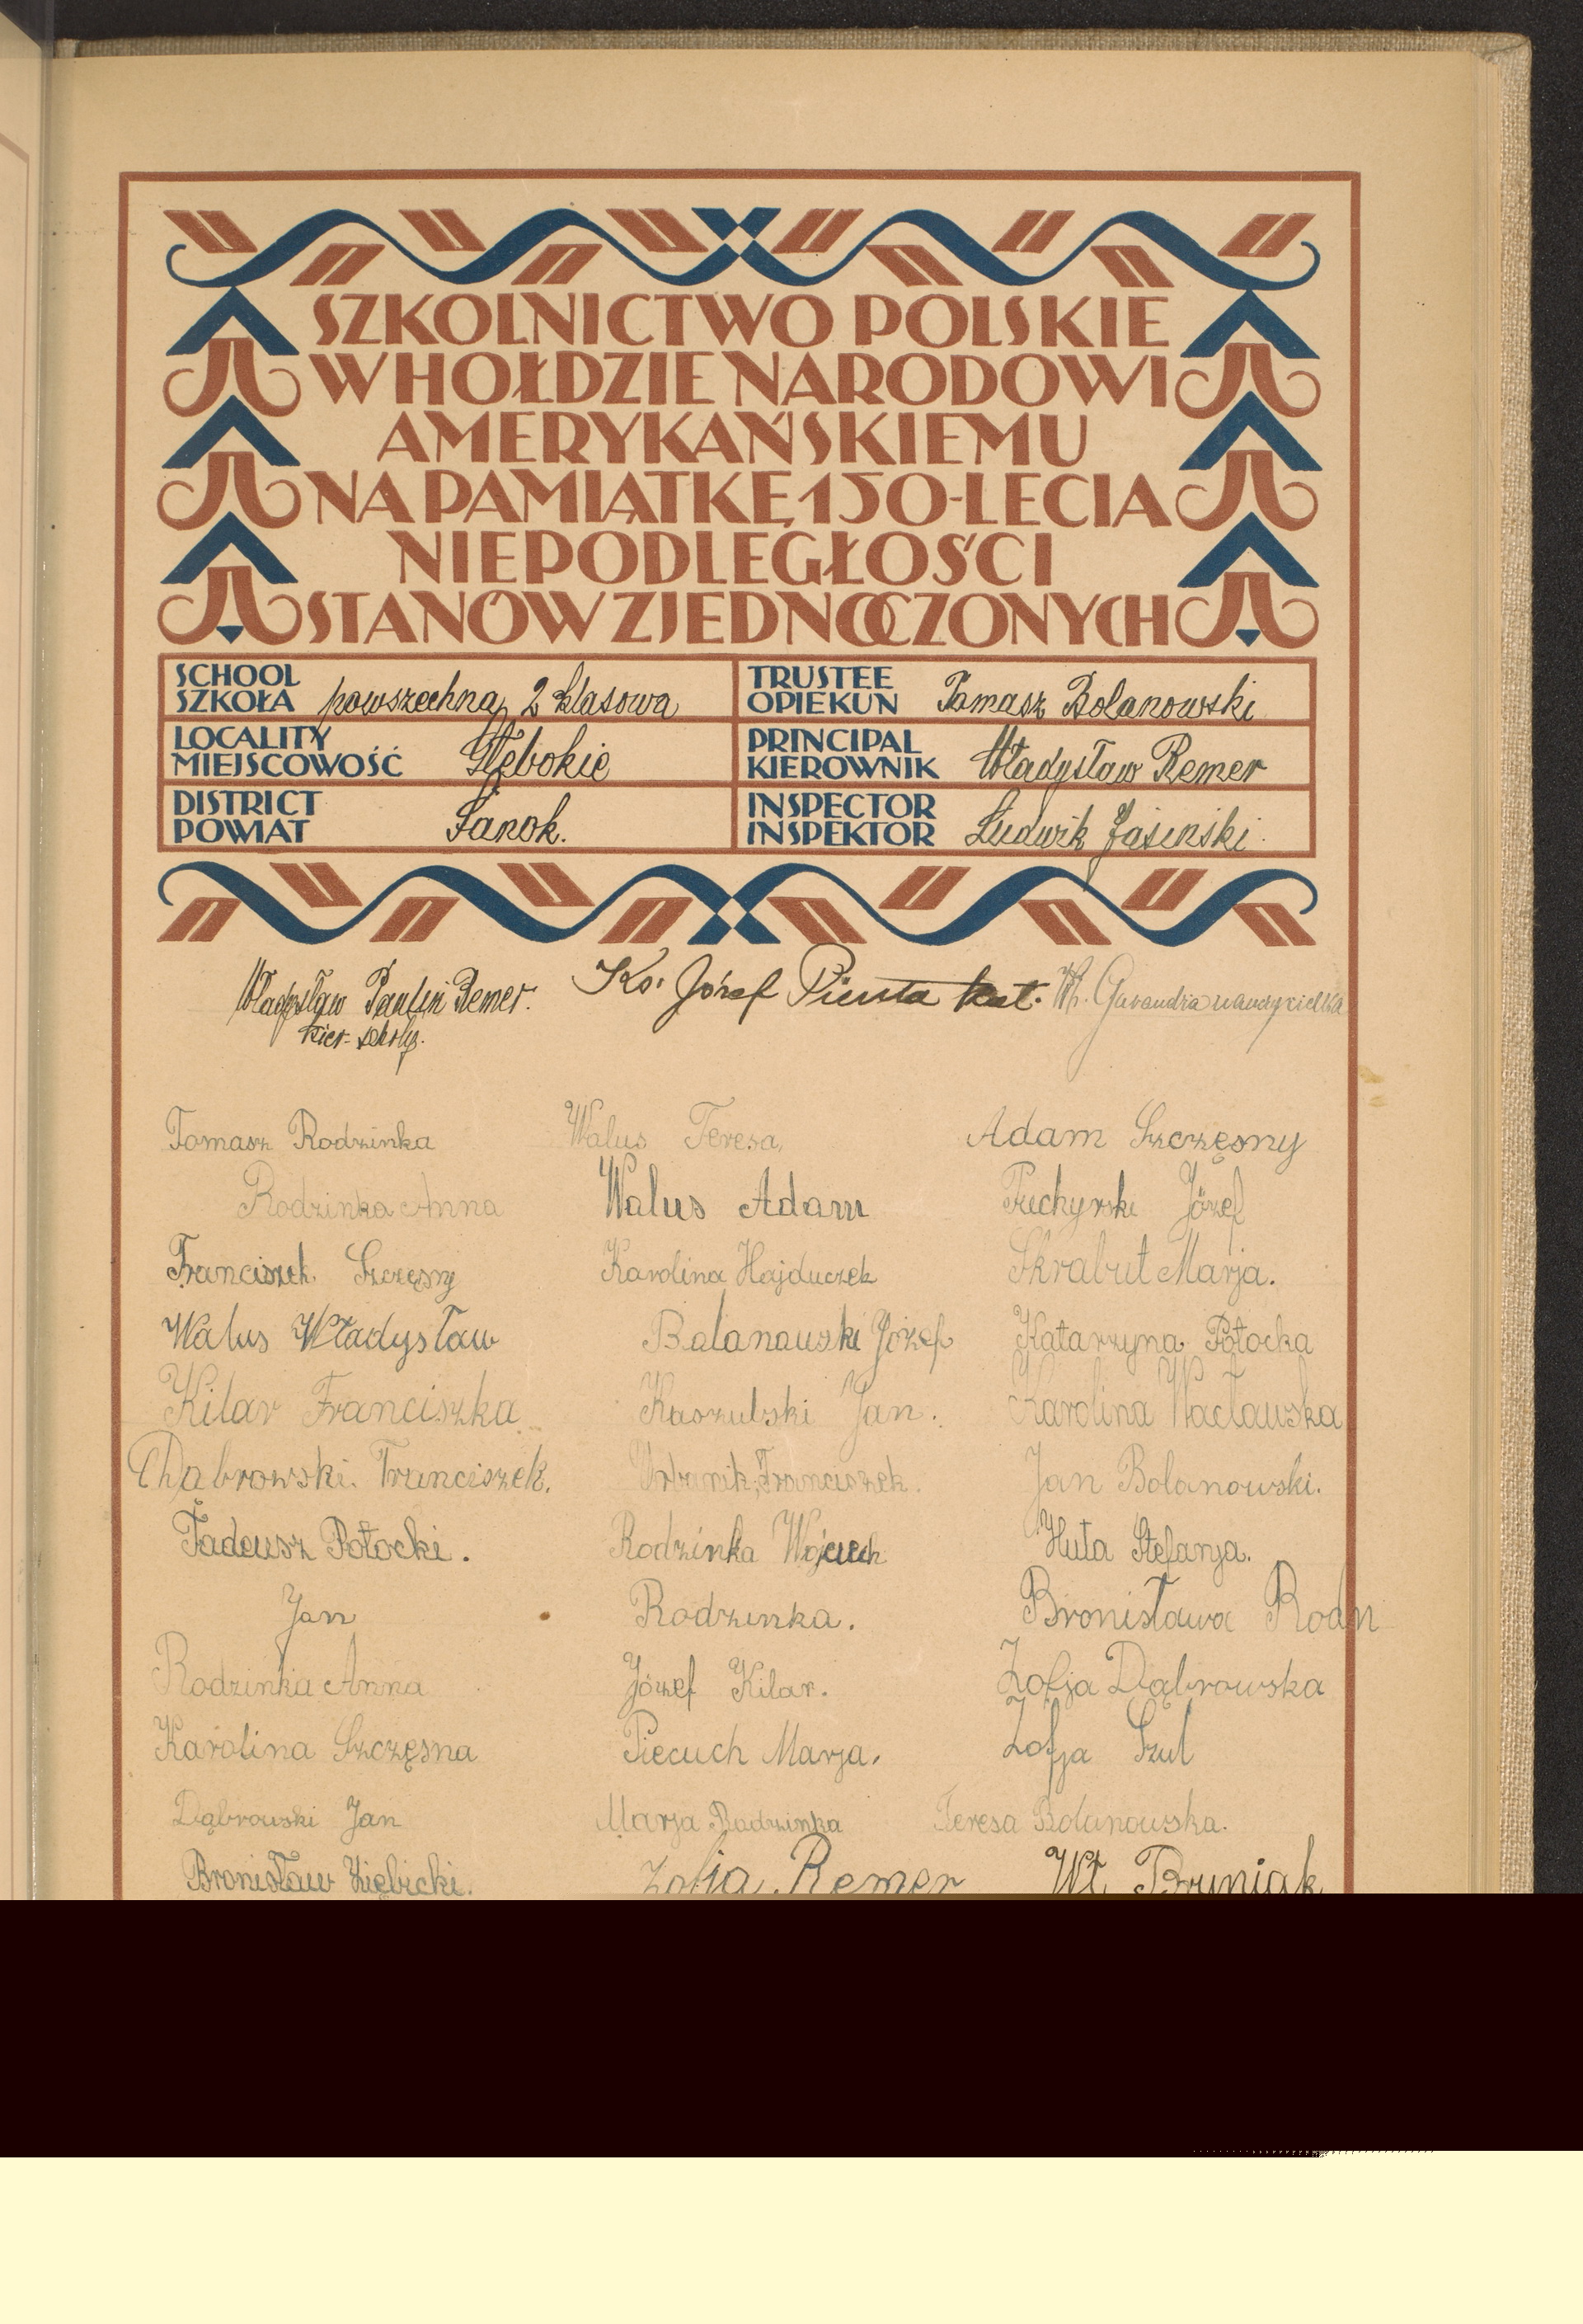 SZKOLNICTWO POLSKIE
W HOŁDZIE NARODOWI
AMERYKAŃSKIEMU
NA PAMIĄTKĘ 150-LECIA
NIEPODLEGŁOŚCI
STANÓW ZJEDNOCZONYCH
SCHOOL
SZKOŁA powszechna, 2 klasowa
TRUSTEE
OPIEKUN Tomasz Bolanowski
LOCALITY
MIEJSCOWOŚĆ Głębokie
PRINCIPAL
KIEROWNIK Władysław Remer
DISTRICT
POWIAT Sanok.
INSPECTOR
INSPEKTOR Ludwik Jasiński.
Władysław Paulin Remer. Ks. Józef Pienta kat. nauczycielka
kier. szkoły.
Tomasz Rodzinka Walus Teresa, Adam Szczęsny
Rodzinka Anna Walus Adam Józef
Franciszek Szczęsny Karolina Hajduczek Skrabut Marja.
Walus Władysław Balanauski Józef Katarzyna Potocka
Kilar Franciszka Kaszubski Jan. Karolina Wacławska
Dąbrowski. Franciszek. Urbanik Franciszek. Jan Bolanowski.
Tadeusz Potocki. Rodzinka Wojciech Huta Stefanja.
Jan Rodzinka. Bronisława Rodn
Rodzinka Anna Józef Kilar. Zofja Dąbrowska
Karolina Szczęsna Piecuch Marja. Zofja Szul
Dąbrowski Jan Marja Rodzinka Teresa Bolanowska.
Bronisław Zięlicki. Zofja Remer Wł. Bruniak